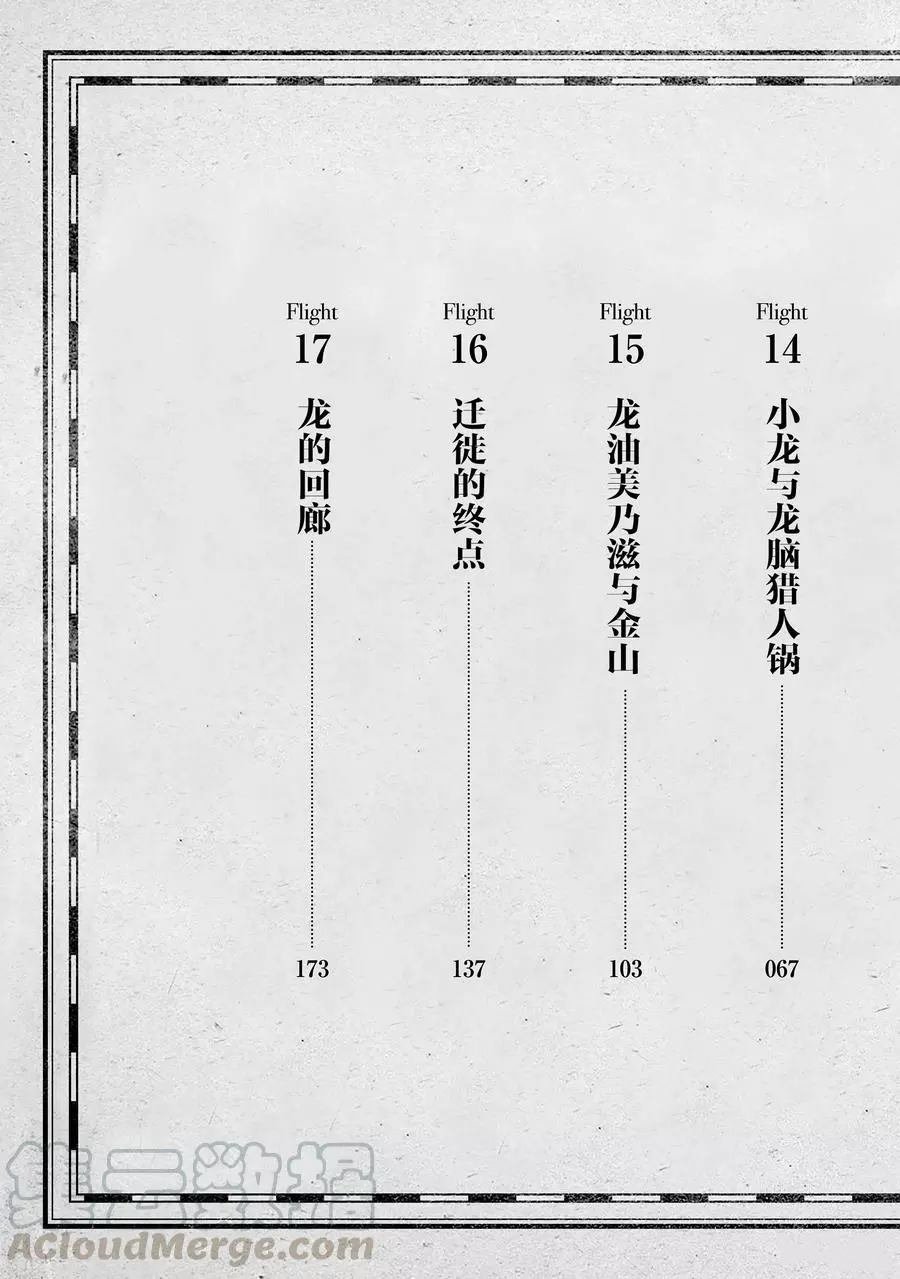 Flight
14
小龙与龙脑猎人锅
067
Flight
15
龙油美乃滋与金山
103
Flight
16
迁徙的终点
137
Flight
17
龙的回廊
173
集云数据
ACloudMerge.com